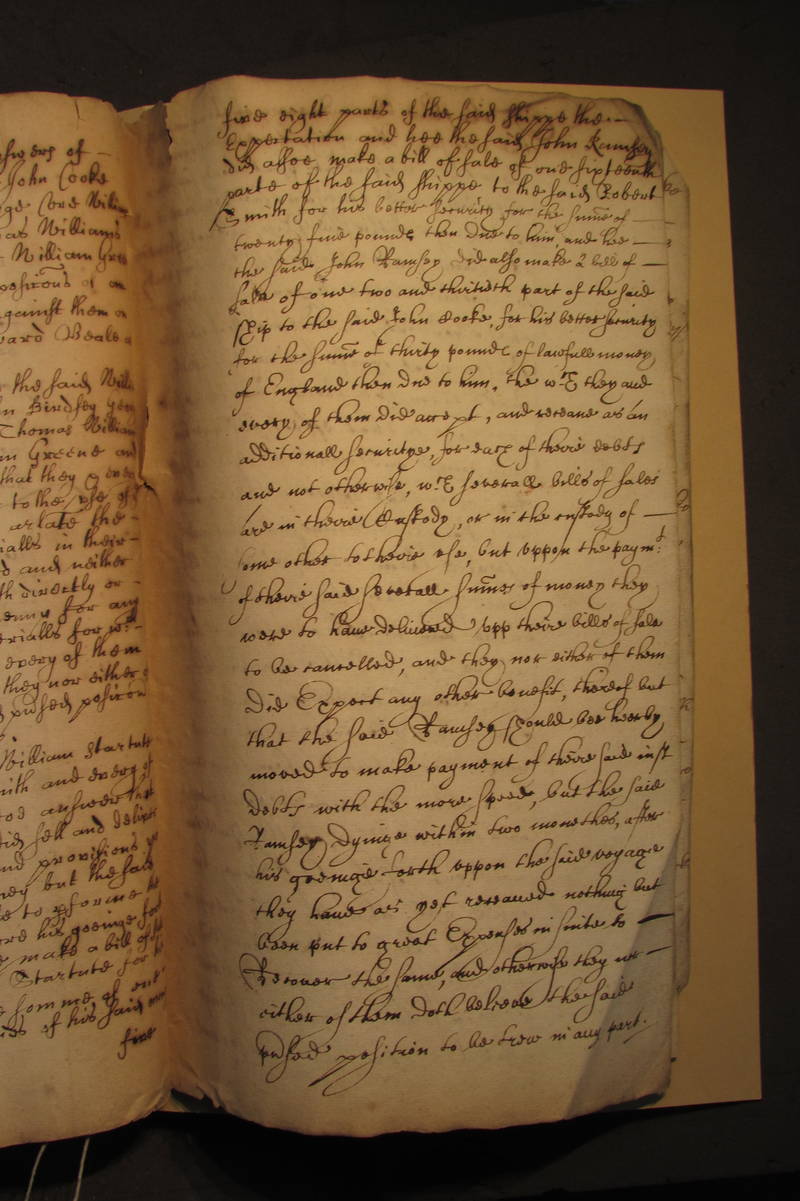 swers of
John Cooke
William
as Williams
William Gre
positions
against them
ward Beale
the said Will
Birdsey
Thomas William
Greene and
that they
to the use of
arlate the
rialls in their
s and neither
th directly or
for any
rialls for wch
every of them
they nor either
pdsed position
William Startute
ith and every of
answer that
did sell and deliver
nd provisions
ney but the said
e to pforme
ore his goeinge for
make a bill of
Startute for
somme of
of his said
five
five eight parts of the said shippe the
Expectation and hee the said John Ramsey
did allsoe make a bill of sale of one sixteenth
parte of the said shippe to the said Robert
Smith for his better security for the summe of
twenty five pounds then due to him, and hee
the said John Ramsey did also make a bill of
sale of one two and thirtieth part of the said
ship to the said John Cooke, for his better security
for the summe of thirty pounds of lawfull money
of England then due to him, the wch they and
every of them did accept, and receave as an
additionall securitye, for each of theire debts
and not otherwise, wch severall bills of sales
are in theire Custody, or in the custody of
some other to theire use, but uppon the paymt
of theire said severall summes of money they
were to have delivered upp theire bills of sale
to be cancelled, and they nor either of them
did Expect any other benefit, thereof but
that the said Ramsey should bee heerby
moved to make payment of theire said just
debts with the more speed, but the said
Ramsey dyinge within two monethes, after
his goeinge forth uppon the said voyage
they have as yet receaved nothing but
been put to great Expenses in suite to
Recover the same, and otherwise they nor
either of them doth beleeve the said
pdsed position to be trew in any part.